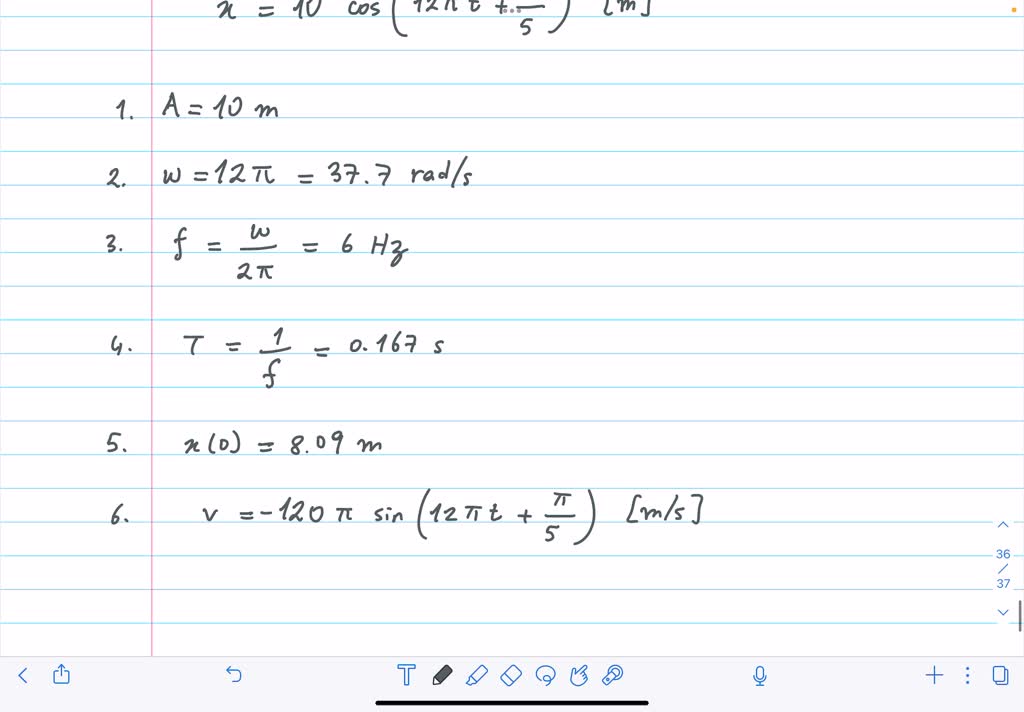 x = 10 cos (12π t + π/5) [m]
1. A = 10 m
2. w = 12π = 37.7 rad/s
3. f = w/2π = 6 Hz
4. T = 1/f = 0.167 s
5. x(0) = 8.09 m
6. v = -120 π sin (12 π t + π/5) [m/s]
36
/
37
T